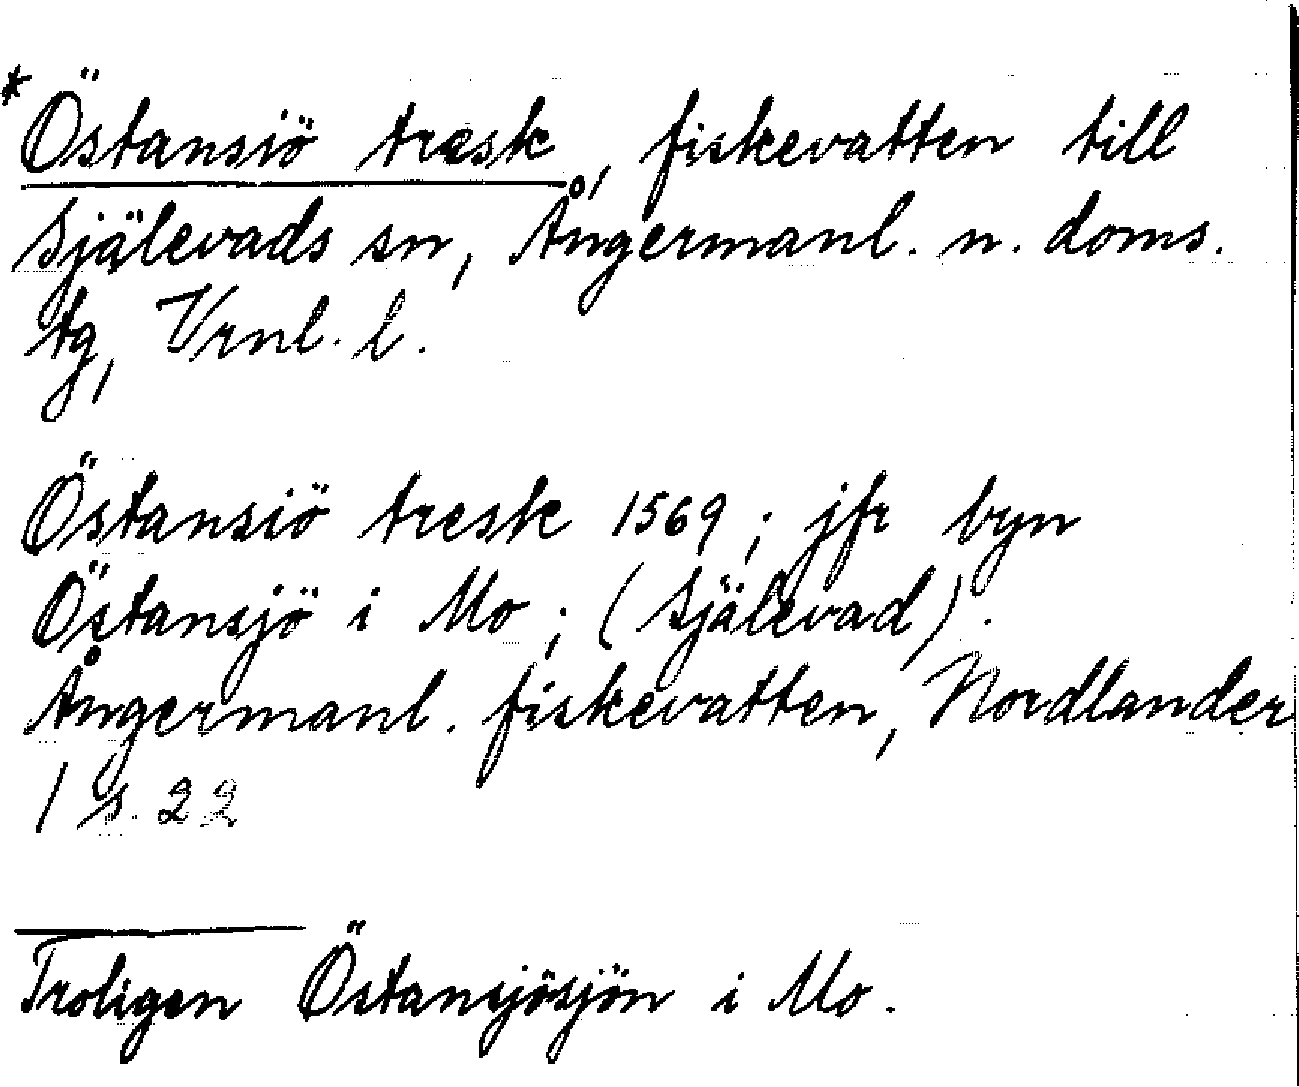 *Östansiö tresk, fiskevatten till
Själevads sn, Ångermanl. n. doms.
tg, Vrnl. l.
Östansiö tresk 1569; jfr byn
Östansjö i Mo; (Själevad).
Ångermanl. fiskevatten, Nordlander
1 s. 22
Troligen Östansjösjön i Mo.